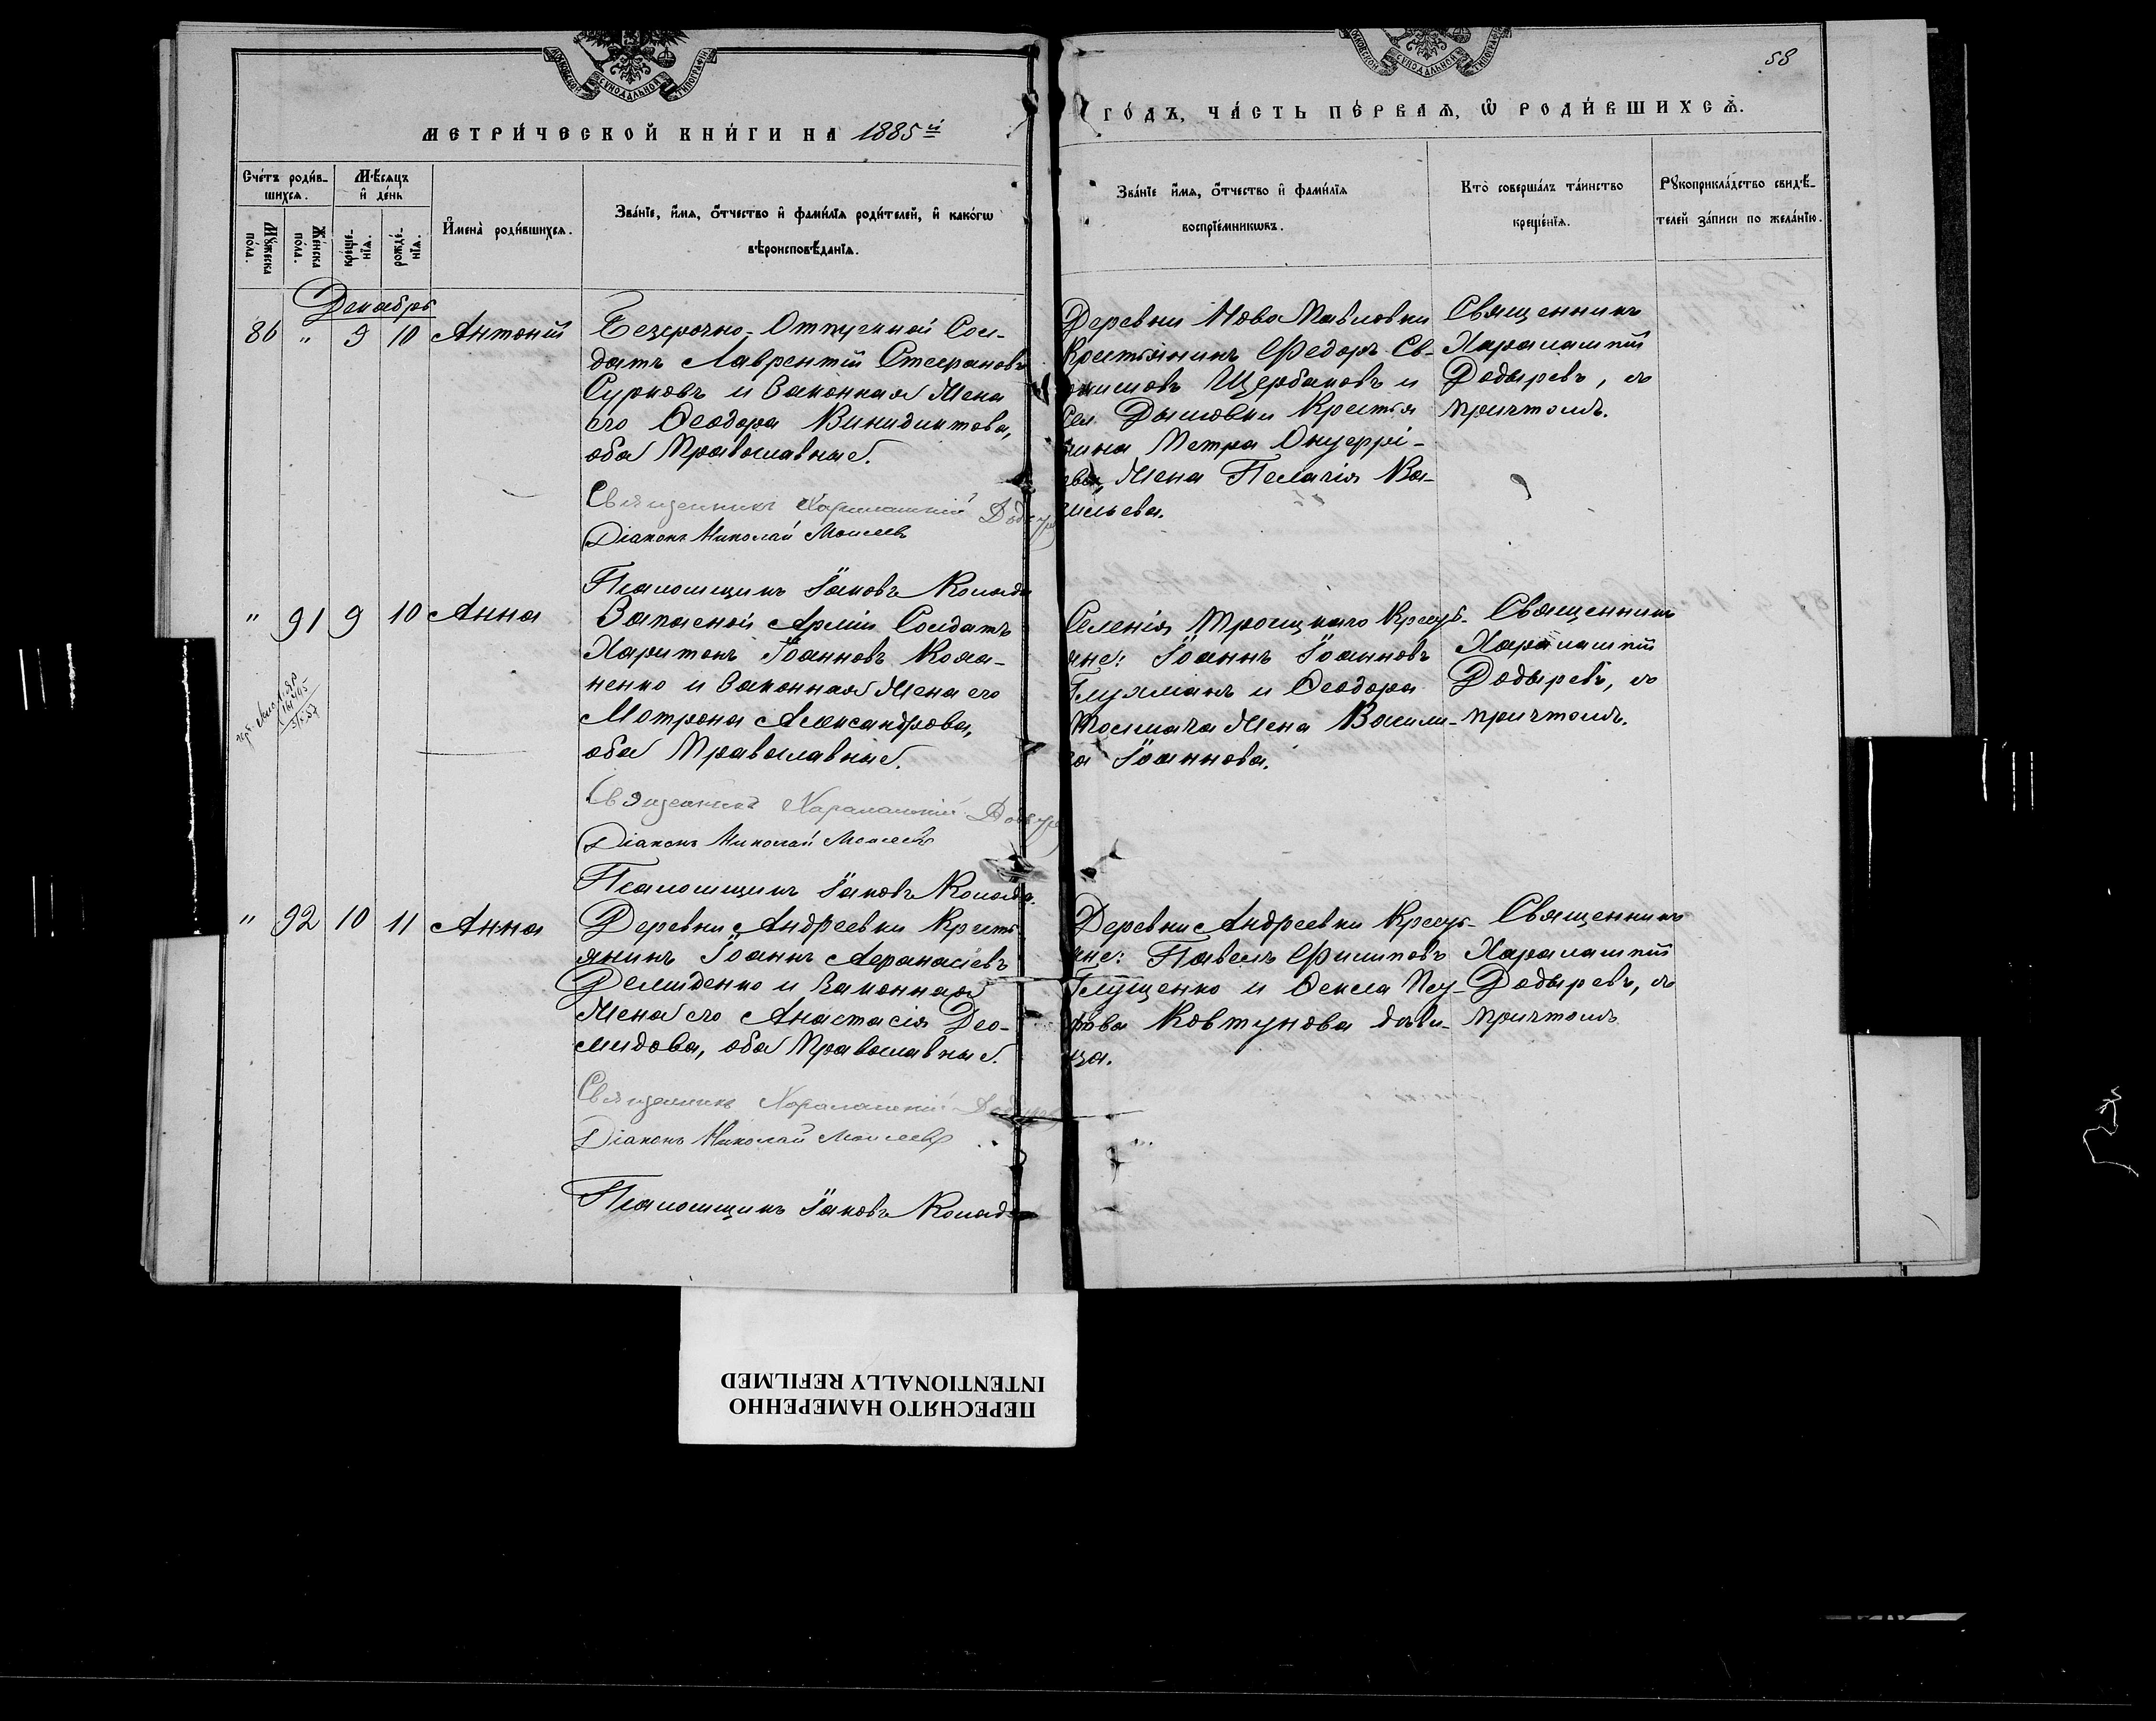 МОСКОВСКОЙ СУНОДАЛЬНОЙ ТИПОГРАФІИ
МОСКОВСКОЙ СУНОДАЛЬНОЙ ТИПОГРАФІИ
58
МЕТРИ́ЧЕСКОЙ КНИ́ГИ НА 1885й
ГО́ДЪ, ЧА́СТЬ ПЕ́РВАѦ, Ѡ РОДИ́ВШИХСѦ.
Сче́тъ роди́в-
шихсѧ.
Мѣ́сѧцъ
и҆ де́нь
Мꙋ́жеска
по́ла.
Же́нска
по́ла.
креще́-
нїѧ.
рожде́-
нїѧ.
И҆мена̀ роди́вшихсѧ.
Зва́нїе, и҆́мѧ, ѻ҆́тчество и҆ фами́лїѧ роди́телей, и҆ како́гѡ
вѣроисповѣ́данїѧ.
Зва́нїе и҆́мѧ, ѻ҆́тчество и҆ фами́лїѧ
воспрїе́мникѡвъ.
Кто̀ соверша́лъ та́инство
креще́нїѧ.
Рꙋкоприкла́дство свидѣ́-
телей за́писи по жела́нїю.
Декабрь
86 " 9 10 Антоній
Безсрочно-Отпускной Сол-
датъ Лаврентій Стефановъ
Сурковъ и Законная Жена
его Ѳеодора Винидиктова,
оба Православные.
Священникъ Харалампій
Діаконъ Николай Моисеевъ
Псаломщикъ Іаковъ
Деревни Ново Павловки
Крестьянинъ Федоръ Ев-
Щербаковъ и
Крестья
нина Петра Онуфрі-
ева, Жена Пелагія Ва-
сильева.
Священникъ
Харалампій
Додыревъ, съ
причтомъ.
" 91 9 10 Анна
Запасной Арміи Солдатъ
Харитонъ Іоанновъ
ненко и Законная Жена его
Мотрона Александрова,
оба Православные.
Священникъ Харалампій
Діаконъ Николай Моисеевъ
Псаломщикъ Іаковъ
Селенія Троицкаго Кресть-
яне: Іоаннъ Іоанновъ
и Ѳеодора
Жена Васили-
са Іоаннова.
Священникъ
Харалампій
Додыревъ, съ
причтомъ.
" 92 10 11 Анна
Деревни Андреевки Кресть
янинъ Іоаннъ Афанасіевъ
Демиденко и Законная
Жена его Анастасія Део-
мидова, оба Православные.
Священникъ Харалампій
Діаконъ Николай Моисеевъ
Псаломщикъ Іаковъ
Деревни Андреевки Кресть-
яне: Павелъ Филиповъ
Глущенко и Ѳекла
Ковтунова дѣви-
ца.
Священникъ
Харалампій
Додыревъ, съ
причтомъ
ПЕРЕСНЯТО НАМЕРЕННО
INTENTIONALLY REFILMED